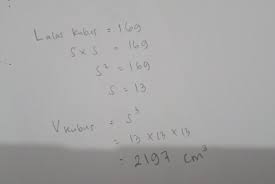 Luas kubus = 169
s x s = 169
s² = 169
s = 13
V kubus = s³
= 13 x 13 x 13
= 2197 cm³